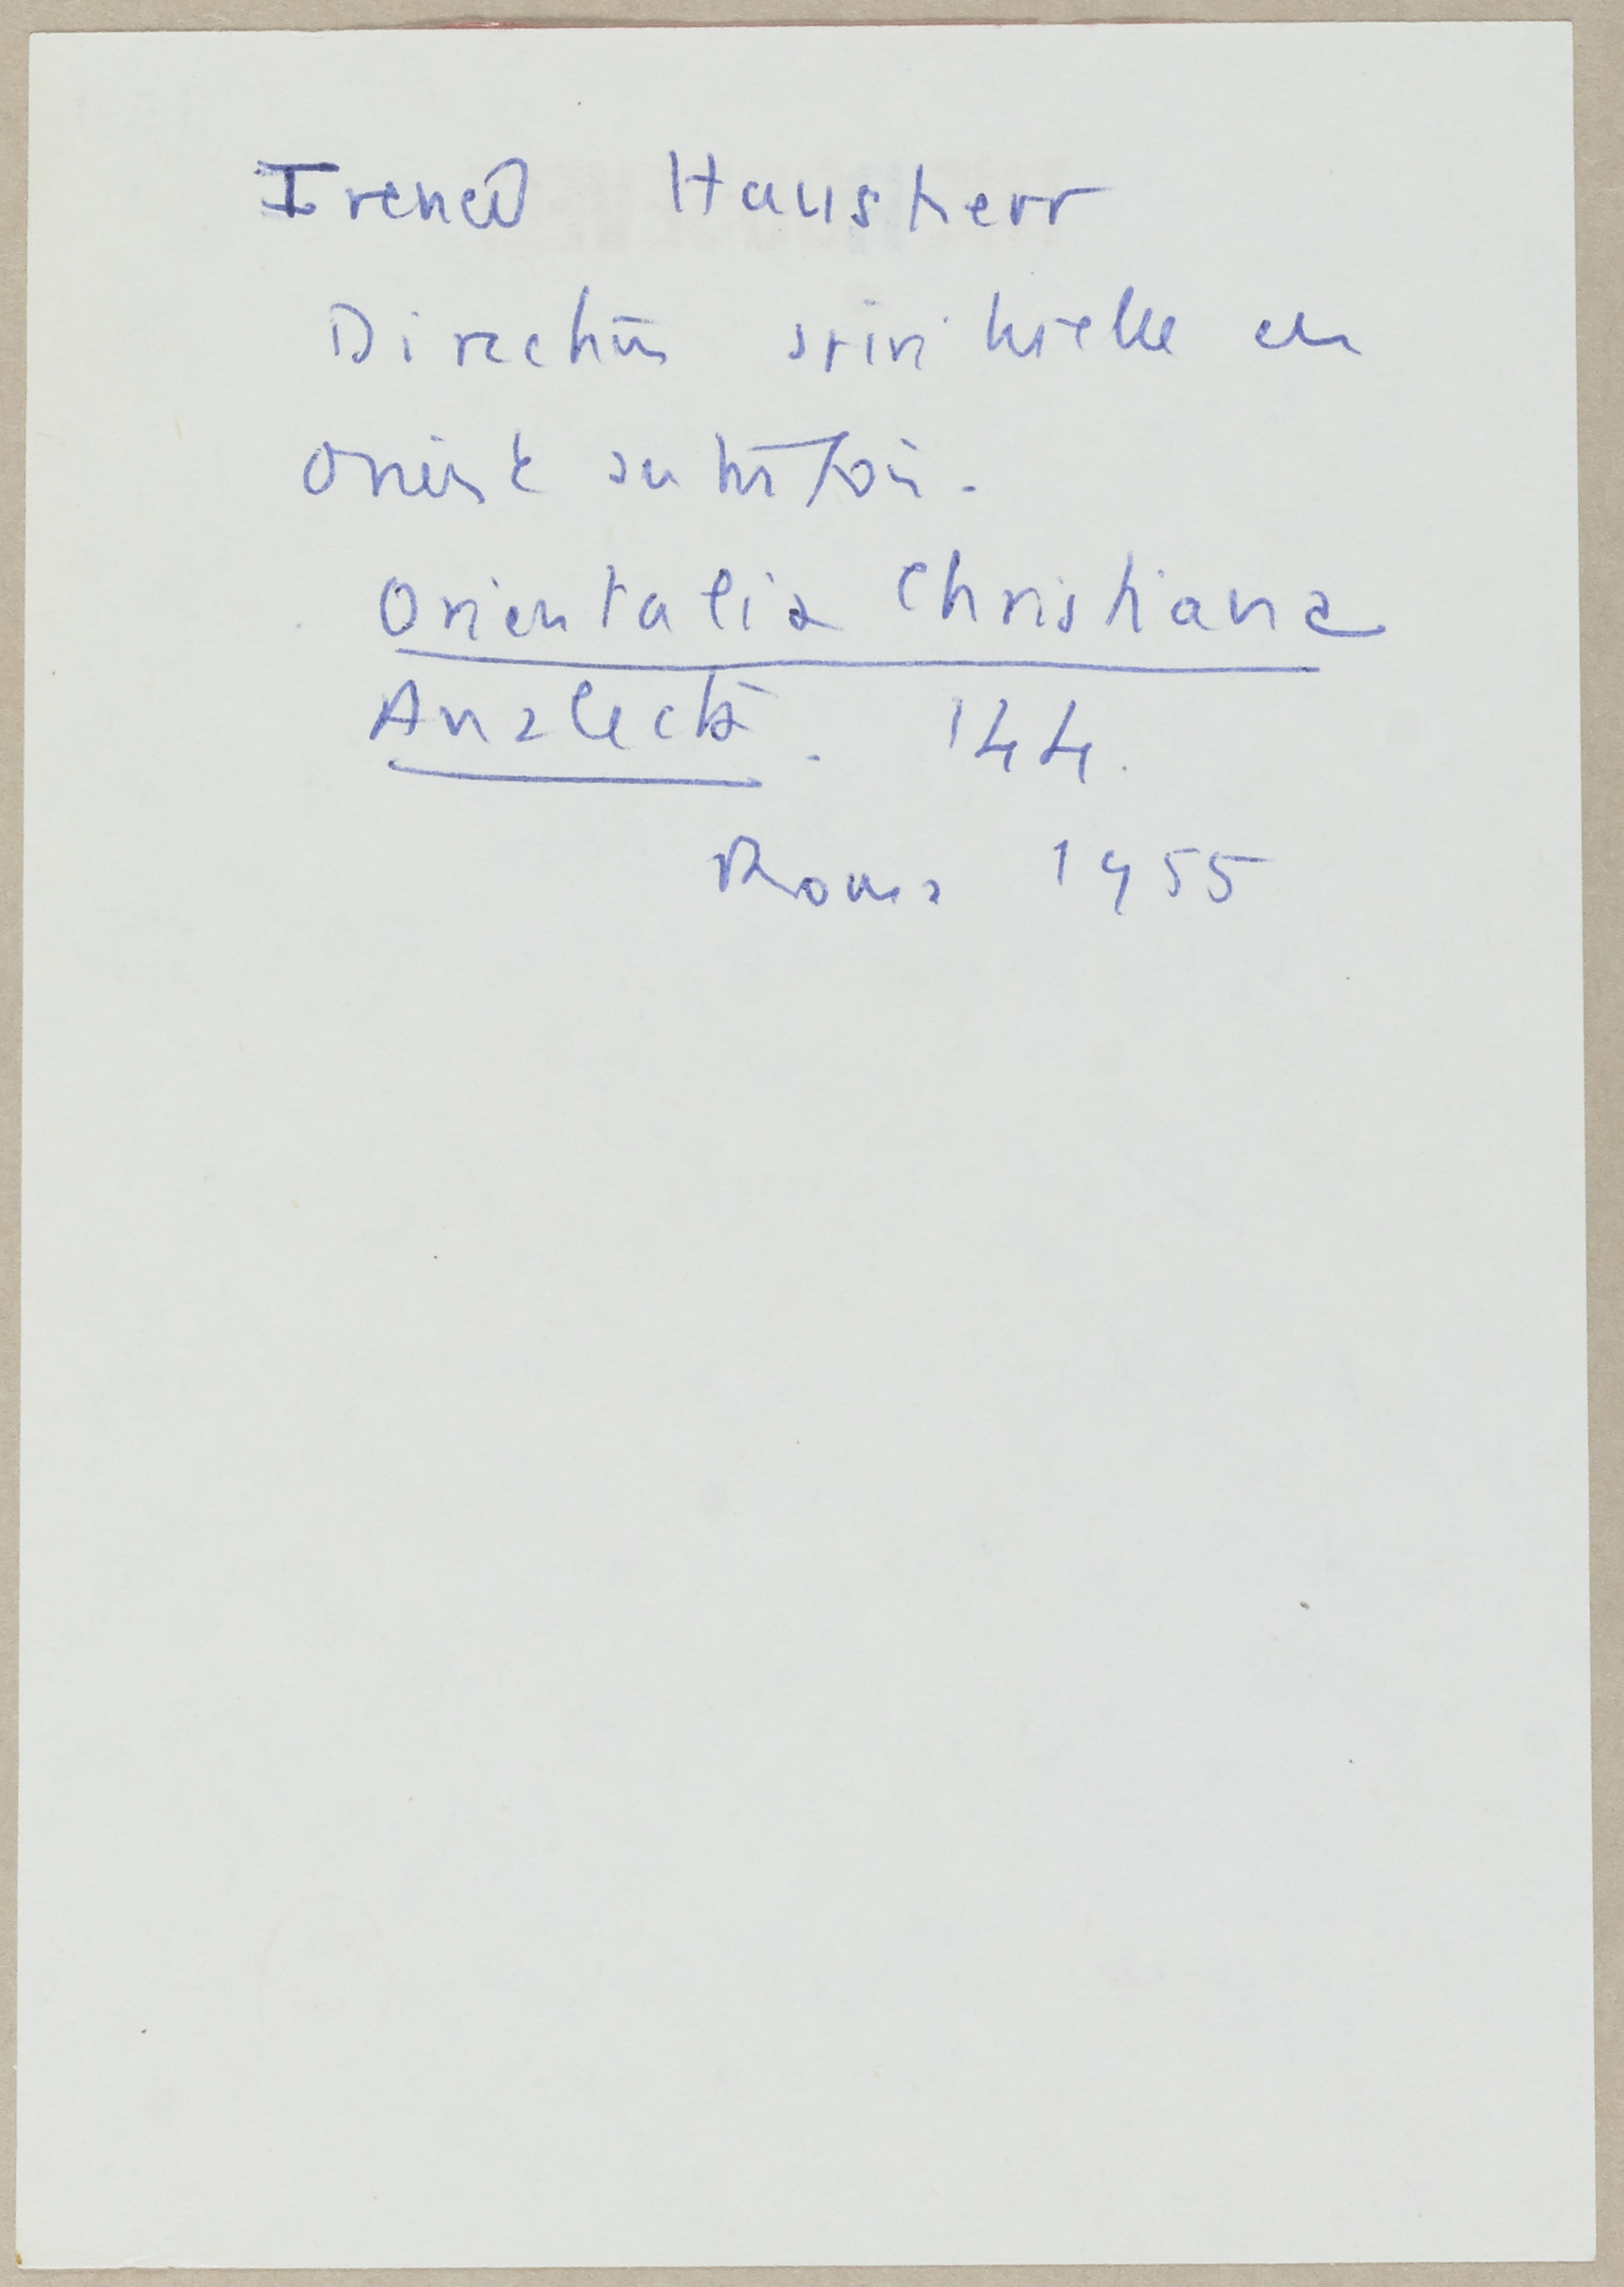 Irenee Hausherr
Direction spirituelle en
Orient autrefois.
Orientalia Christiana
Analecta. 144.
Roma 1955